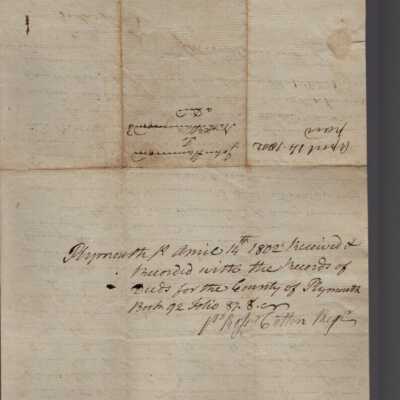 April 14. 1802
John Hammond
To
a Deed
Plymouth ss April 14th 1802 Received &
Recorded with the Records of
Deeds for the County of Plymouth
Book 92 Folio 87. &c
Cotton Regr